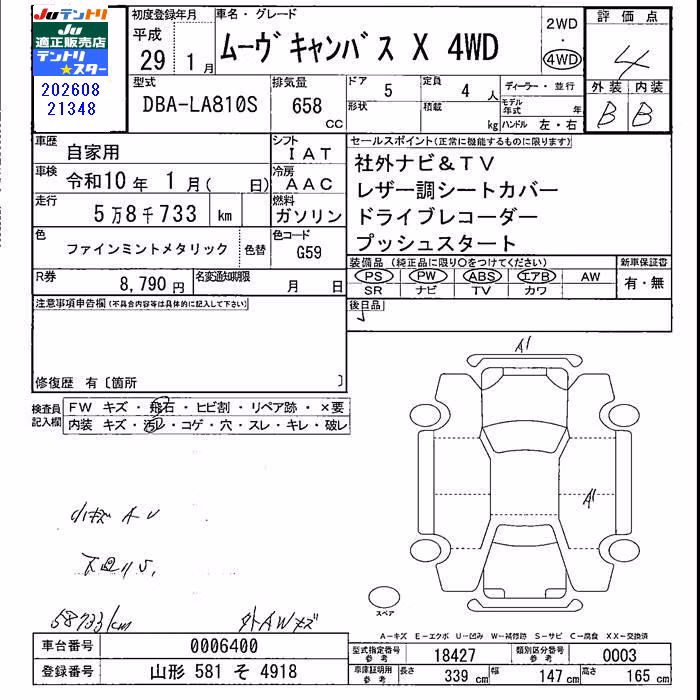 Juテントリ
Ju
適正販売店
テントリ
★スター
202608
21348
初度登録年月
平成
29 1 月
車名・グレード
ムーヴキャンバス X 4WD
2WD
・
4WD
評価点
4
外装 内装
B B
型式
DBA-LA810S
排気量
658
CC
ドア
5
定員
4 人
形状
積載
kg
ディーラー・並行
モデル年式 年
ハンドル 左・右
車歴
自家用
シフト
IAT
車検
令和10年 1月( 日)
冷房
AAC
走行
5万8千733 km
燃料
ガソリン
色
ファインミントメタリック
色替
色コード
G59
R券
8,790円
名変通知期限
月 日
セールスポイント(正常に機能するものに限ります)
社外ナビ&TV
レザー調シートカバー
ドライブレコーダー
プッシュスタート
装備品(純正品に限り○をつけてください)
PS PW ABS エアB AW
SR ナビ TV カワ
新車保証書
有・無
後日品
注意事項申告欄(不具合内容等は具体的に記入して下さい)
修復歴 有〔箇所 〕
検査員
記入欄
FW キズ・飛石・ヒビ割・リペア跡・×要
内装 キズ・汚レ・コゲ・穴・スレ・キレ・破レ
A1
A1
小キズ A・U
58733km
外AWキズ
スペア
A―キズ E―エクボ U―凹み W―補修跡 S―サビ C―腐食 XX―交換済
車台番号
0006400
登録番号
山形 581 そ 4918
型式指定番号
参考
18427
類別区分番号
参考
0003
車庫証明用
参考
長さ 339 cm 幅 147 cm 高さ 165 cm